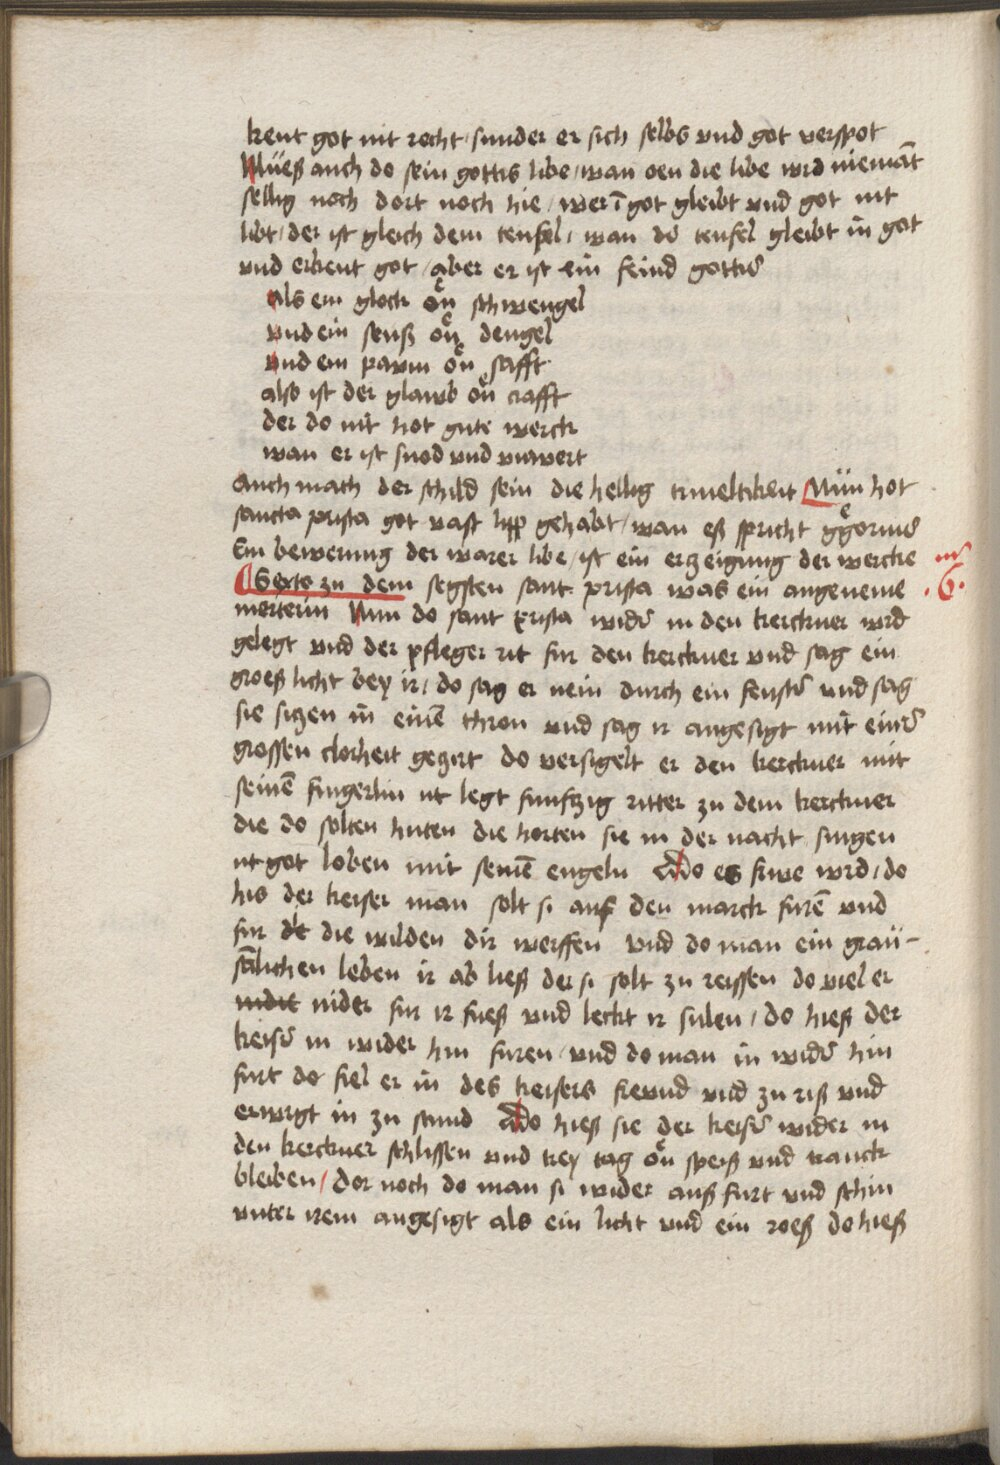 kent got nit recht / sunder er sich selbs vnd got verspot
Müeß auch do sein gottis libe / wan oen die libe wrd niemāt
sellig noch dort noch hie / wer ī got gleibt vnd got nit
libt / der ist gleich dem teufel / wan d̛ teufel gleibt in got
vnd erkent got / aber er ist ein feind gott̛
als ein glock oͤn schwengel
vnd ein senß oͤn dengel
vnd ein pawm oͤn safft
also ist der glawb oͤn crafft
der do nit hot gute werck
wan er ist snod vnd vnwert
Auch mach der schild sein die hellig Nün hot
sancta prisca got vast lipp gehabt / wan eß spricht
Ein bewerung der warer libe / ist ein erzeigung der wercke
Sexto zu dem segsten sant prisca was ein angeneme .6.
merterin Nun do sant prisca wid̛ in den kerckner wrd
gelegt vnd der pfleger rit fur den kerckner vnd sag ein
groeß licht bey ir / do sag er nein durch ein fenst̛ vnd sag
sie siczen in einē thron vnd sag ir angesigt mit ein̛
grossen clorheit gezirt do versigelt er den kerckner mit
seinē fingerlin vt legt funfczig ritter zu dem kerckner
die do solten huten die horten sie in der nacht singen
vt got loben mit seinē engeln Do es frwe wrd / do
his der keiser man solt si auf den marck furē vnd
fur die wilden dir werffen vnd do man ein grau-
sālichen leben ir ab ließ der si solt zu reissen do viel er
nider fur ir fueß vnd leckt ir sulen / do hieß der
keis̛ in wider hin furen / vnd do man in wid̛ hin
furt do fiel er in des keisers frewnd vnd zu riß vnd
erwrgt in zu stund Do hieß sie der keis̛ wider in
den kerckner schlissen vnd trey tag oͤn speiß vnd tranck
bleiben / dor noch do man si wider auß furt vnd schin
vnter irem angesigt als ein licht vnd ein roeß do hieß